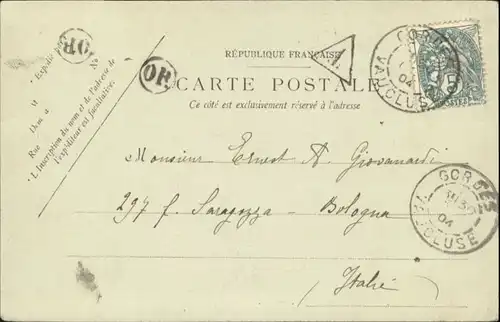 RÉPUBLIQUE FRANÇAISE
CARTE POSTALE
Ce côté est exclusivement réservé à l'adresse
OR
OR
1
GORDES
04
VAUCLUSE
POSTES
Monsieur Ernest A. Giovanardi
297 f. Saragozza - Bologna
Italie
GORDES
04
VAUCLUSE
Expédié
M
Dem à
Rue
N°
L'inscription du nom et de l'adresse de
l'expéditeur est facultative.